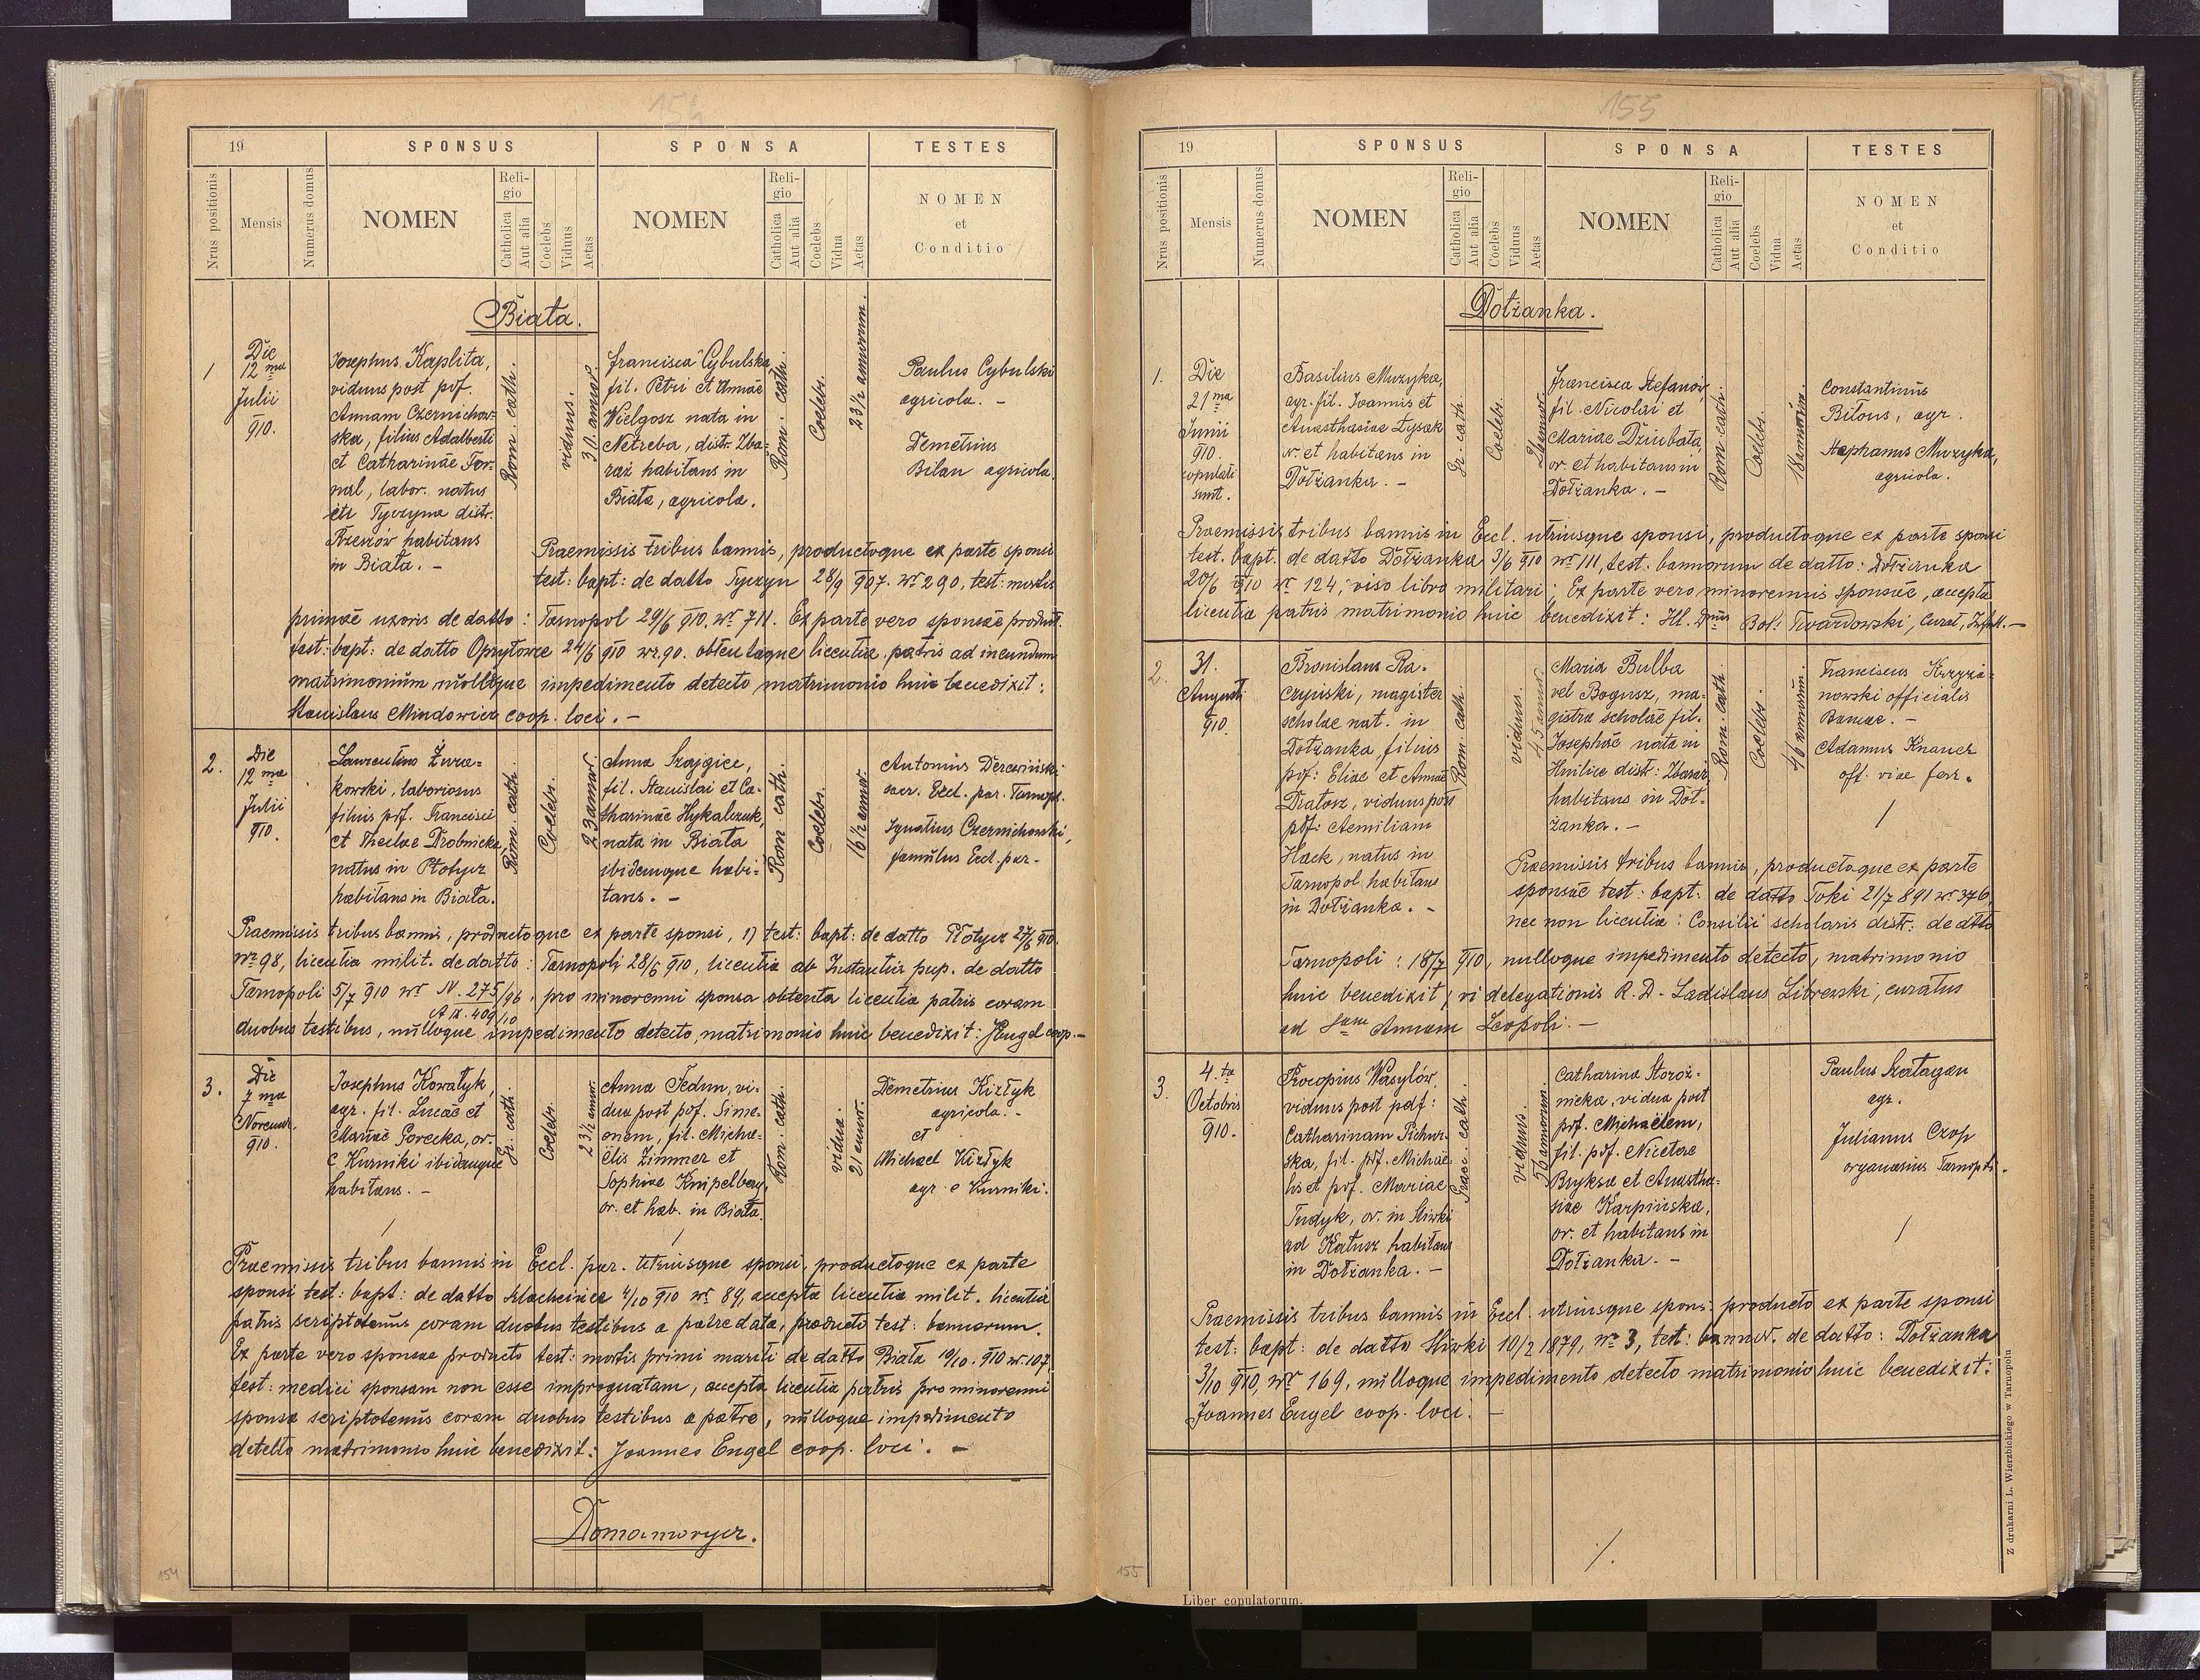 154
19
SPONSUS
SPONSA
TESTES
Nrus positionis
Mensis
Numerus domus
NOMEN
Religio
Catholica
Aut alia
Coelebs
Viduus
Aetas
NOMEN
Religio
Catholica
Aut alia
Coelebs
Vidua
Aetas
NOMEN
et
Conditio
Biała.
1
Die
12 ma
Julii
910.
Josephus Kaplita,
viduus post pdf.
Annam Czernichow-
ska, filius Adalberti
et Catharinae For-
nal, labor. natus
Tyczyna distr.
Rzeszów habitans
in Biała. -
Rom. cath.
viduus.
30 annor.
Francisca Cybulska,
fil. Petri et Annae
Wielgosz nata in
Netreba, distr. Zba-
raż habitans in
Biała, agricola.
Rom. cath.
Coelebs.
23½ annorum.
Paulus Cybulski
agricola. -
Demetrius
Bilan agricola.
Praemissis tribus bannis, productoque ex parte sponsi
test: bapt: de datto Tyczyn 28/9 907. Nr 290, test: mortis
primae uxoris de datto: Tarnopol 29/6 910. Nr 711. Ex parte vero sponsae produt.
test: bapt: de datto Opryłowce 24/6 910 Nr. 90. obtentaque licentia patris ad ineundum
matrimonium nulloque impedimento detecto matrimonio huic benedixit:
Stanislaus Mindowicz coop. loci. -
2.
Die
12 ma
Julii
910.
Laurentius Żura-
kowski, laboriosus
filius pdf. Francisci
et Theclae Drobnicka
natus in Płotycz
habitans in Biała.
Rom. cath.
Coelebs.
23 annor.
Anna Szajgiec,
fil. Stanislai et Ca-
tharinae Hykalczuk,
nata in Biała
ibidemque habi-
tans. -
Rom. cath.
Coelebs.
16½ annor.
Antonius Derewiński
sacr. Eccl. par. Tarnop.
Ignatius Czernichowski,
famulus Eccl. par. -
Praemissis tribus bannis, productoque ex parte sponsi, 1) test: bapt: de datto Płotycz 27/6 910.
Nr 98, licentia milit. de datto: Tarnopoli 28/6 910, licentia ab Instantia pup. de datto
Tarnopoli 5/7 910 Nr N. 275/96, pro minorenni sponsa obtenta licentia patris coram
A IX. 409/10
duobus testibus, nulloque impedimento detecto, matrimonio huic benedixit: J Engel coop. -
3.
Die
7 ma
Novembr.
910.
Josephus Kowałyk,
agr. fil. Lucae et
Mariae Gorecka, or.
e Kurniki ibidemque
habitans. -
Gr. cath.
Coelebs.
23½ annor.
Anna Fedun, vi-
dua post pdf. Sime-
onem, fil. Micha-
ëlis Zimmer et
Sophiae Knipelberg,
or. et hab. in Biała.
Rom. cath.
vidua.
21 annor.
Demetrius Kizłyk
agricola. -
et
Michael Kizłyk
agr. e Kurniki.
Praemissis tribus bannis in Eccl. par. utriusque sponsi, productoque ex parte
sponsi test: bapt: de datto Szlacheinice 4/10 910 Nr 89, accepta licentia milit. licentia
patris scriptotenus coram duobus testibus a patre data, producto test: bannorum.
Ex parte vero sponsae producto test: mortis primi mariti de datto Biała 10/10. 910 Nr 107
test: medici sponsam non esse impregnatam, accepta licentia patris pro minorenni
sponsa scriptotenus coram duobus testibus a patre, nulloque impedimento
detecto matrimonio huic benedixit: Joannes Engel coop. loci. -
Domamorycz.
154
155
19
SPONSUS
SPONSA
TESTES
Nrus positionis
Mensis
Numerus domus
NOMEN
Religio
Catholica
Aut alia
Coelebs
Viduus
Aetas
NOMEN
Religio
Catholica
Aut alia
Coelebs
Vidua
Aetas
NOMEN
et
Conditio
Dołżanka.
1.
Die
21 ma
Junii
910.
copulati
sunt.
Basilius Muzyka,
agr. fil. Joannis et
Anasthasiae Łysak
or. et habitans in
Dołżanka. -
Gr. cath.
Coelebs.
annor.
Francisca Stefanów,
fil. Nicolai et
Mariae Dziubata,
or. et habitans in
Dołżanka. -
Rom. cath.
Coelebs.
18 annorum.
Constantinus
Bilous, agr.
Stephanus Muzyka,
agricola.
Praemissis tribus bannis in Eccl. utriusque sponsi, productoque ex parte sponsi
test. bapt. de datto Dołżanka 3/6 910 Nr 111, test. bannorum de datto: Dołżanka
20/6 910 Nr 124, viso libro militari; Ex parte vero minorennis sponsae, accepta
licentia patris matrimonio huic benedixit: Ill. Dnus Bol. Twardowski, Curat, Infull. -
2.
31.
Augusti
910.
Bronislaus Ra-
czyński, magister
scholae nat. in
Dołżanka, filius
pdf: Eliae et Annae
Diatosz, viduus post
pdf: Aemiliam
Hack, natus in
Tarnopol habitans
in Dołżanka. -
Rom. cath.
viduus.
45 annor.
Maria Bulba
vel Bogusz, ma-
gistra scholae fil.
Josephae nata in
Hnilice distr: Zbaraż
habitans in Doł-
żanka. -
Rom. cath.
Coelebs.
46 annorum.
Franciscus Krzyża-
nowski officialis
Bancae. -
Adamus Knauer
off. viae ferr.
Praemissis tribus bannis, productoque ex parte
sponsae test: bapt: de datto Toki 21/7 891 Nr 376,
nec non licentia: Consilii scholaris distr. de dtto
Tarnopoli: 18/7 910, nulloque impedimento detecto, matrimonio
huic benedixit, vi delegationis R. D. Ladislaus Librewski, curatus
ad Stam Annam Leopoli. -
3.
4. ta
Octobris
910.
Procopius Wasylów,
viduus post pdf:
Catharinam Pichur-
ska, fil. pdf. Michaë-
lis et pdf. Mariae
Tudyk, or. in Sliwki
ad Kałusz habitans
in Dołżanka. -
Graec. cath.
viduus.
56 annorum.
Catharina Storoż-
nicka, vidua post
pdf. Michaëlem,
fil. pdf. Nicetae
Bryksa et Anastha-
siae Karpińska,
or. et habitans in
Dołżanka. -
Paulus Szatagan
agr.
Julianus Czop
organarius Tarnopoli.
Praemissis tribus bannis in Eccl. utriusque spons: producto ex parte sponsi
test: bapt: de datto Sliwki 10/2 1879, Nr 3, test: bannor. de datto: Dołżanka
3/10 910, Nr 169, nulloque impedimento detecto matrimonio huic benedixit:
Joannes Engel coop. loci. -
155
Liber copulatorum.
Z drukarni L. Wierzbickiego w Tarnopolu